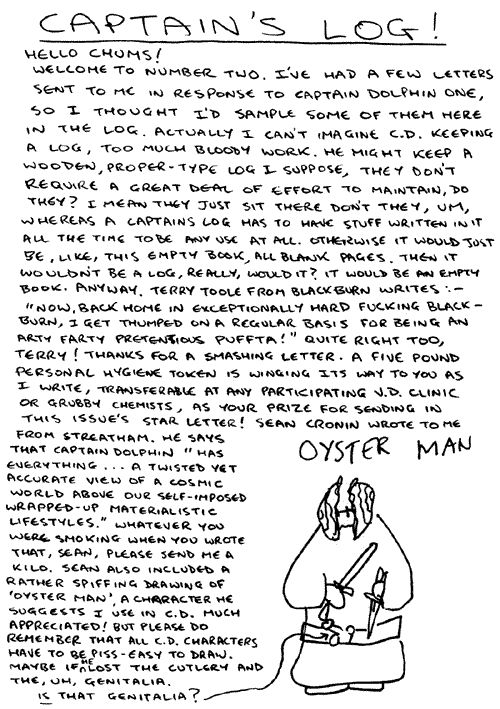 CAPTAIN'S LOG!
HELLO CHUMS!
WELCOME TO NUMBER TWO. I'VE HAD A FEW LETTERS
SENT TO ME IN RESPONSE TO CAPTAIN DOLPHIN ONE,
SO I THOUGHT I'D SAMPLE SOME OF THEM HERE
IN THE LOG. ACTUALLY I CAN'T IMAGINE C.D. KEEPING
A LOG, TOO MUCH BLOODY WORK. HE MIGHT KEEP A
WOODEN, PROPER-TYPE LOG I SUPPOSE, THEY DON'T
REQUIRE A GREAT DEAL OF EFFORT TO MAINTAIN, DO
THEY? I MEAN THEY JUST SIT THERE DON'T THEY, UM,
WHEREAS A CAPTAINS LOG HAS TO HAVE STUFF WRITTEN IN IT
ALL THE TIME TO BE ANY USE AT ALL. OTHERWISE IT WOULD JUST
BE, LIKE, THIS EMPTY BOOK, ALL BLANK PAGES. THEN IT
WOULDN'T BE A LOG, REALLY, WOULD IT? IT WOULD BE AN EMPTY
BOOK. ANYWAY, TERRY TOOLE FROM BLACKBURN WRITES :-
"NOW, BACK HOME IN EXCEPTIONALLY HARD FUCKING BLACK-
BURN, I GET THUMPED ON A REGULAR BASIS FOR BEING AN
ARTY FARTY PRETENTIOUS PUFFTA!" QUITE RIGHT TOO,
TERRY! THANKS FOR A SMASHING LETTER. A FIVE POUND
PERSONAL HYGIENE TOKEN IS WINGING ITS WAY TO YOU AS
I WRITE, TRANSFERABLE AT ANY PARTICIPATING V.D. CLINIC
OR GRUBBY CHEMISTS, AS YOUR PRIZE FOR SENDING IN
THIS ISSUE'S STAR LETTER! SEAN CRONIN WROTE TO ME
FROM STREATHAM. HE SAYS
THAT CAPTAIN DOLPHIN "HAS
EVERYTHING... A TWISTED YET
ACCURATE VIEW OF A COSMIC
WORLD ABOVE OUR SELF-IMPOSED
WRAPPED-UP MATERIALISTIC
LIFESTYLES." WHATEVER YOU
WERE SMOKING WHEN YOU WROTE
THAT, SEAN, PLEASE SEND ME A
KILO. SEAN ALSO INCLUDED A
RATHER SPIFFING DRAWING OF
'OYSTER MAN', A CHARACTER HE
SUGGESTS I USE IN C.D. MUCH
APPRECIATED! BUT PLEASE DO
REMEMBER THAT ALL C.D. CHARACTERS
HAVE TO BE PISS-EASY TO DRAW.
MAYBE IF HE LOST THE CUTLERY AND
THE, UM, GENITALIA.
IS THAT GENITALIA?
OYSTER MAN